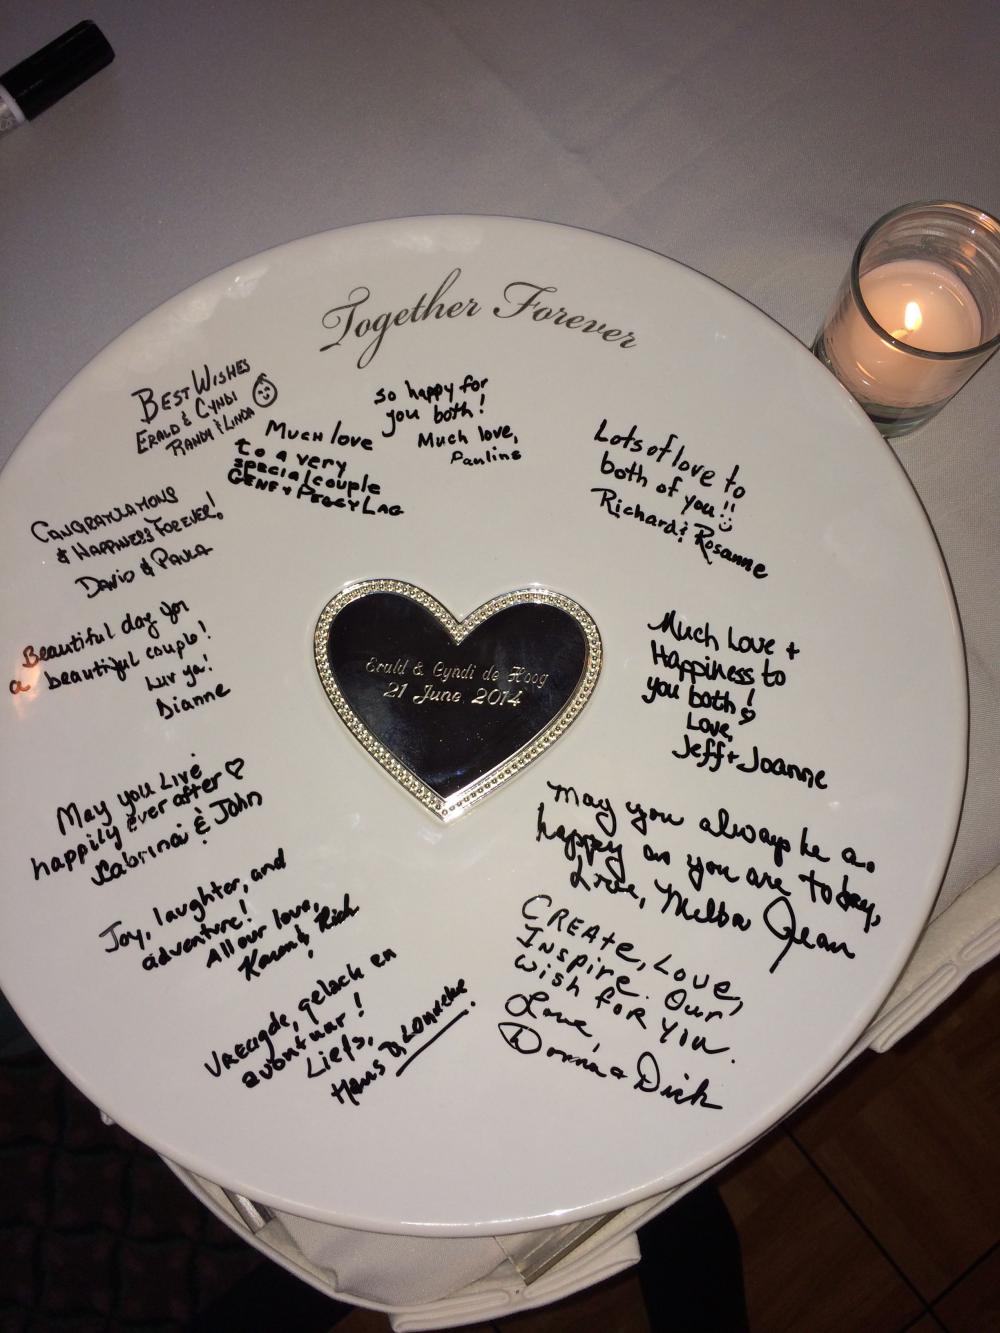 Together Forever
BEST WISHES
ERALD & CYNDI
RANDY & LINDA
Much love
to a very
special couple
GENE & PEGGY LAG
So happy for
you both!
Much love,
Pauline
Lots of love to
both of you!!
Richard & Rosanne
CONGRATULATIONS
& HAPPINESS FOREVER!
DAVID & PAULA
Beautiful day for
a beautiful couple!
Luv ya!
Dianne
Erald & Cyndi de Hoog
21 June, 2014
Much Love +
Happiness to
you both!
Love,
Jeff + Joanne
May you Live
happily ever after
Sabrina & John
May you always be as
happy as you are today,
Love, Melba Jean
Joy, laughter, and
adventure!
All our love,
Karen & Rich
Create, Love,
Inspire. Our
wish for you.
Love,
Donna & Dick
Vreugde, geluck en
avontuur!
Liefs,
Hans & Lonneke